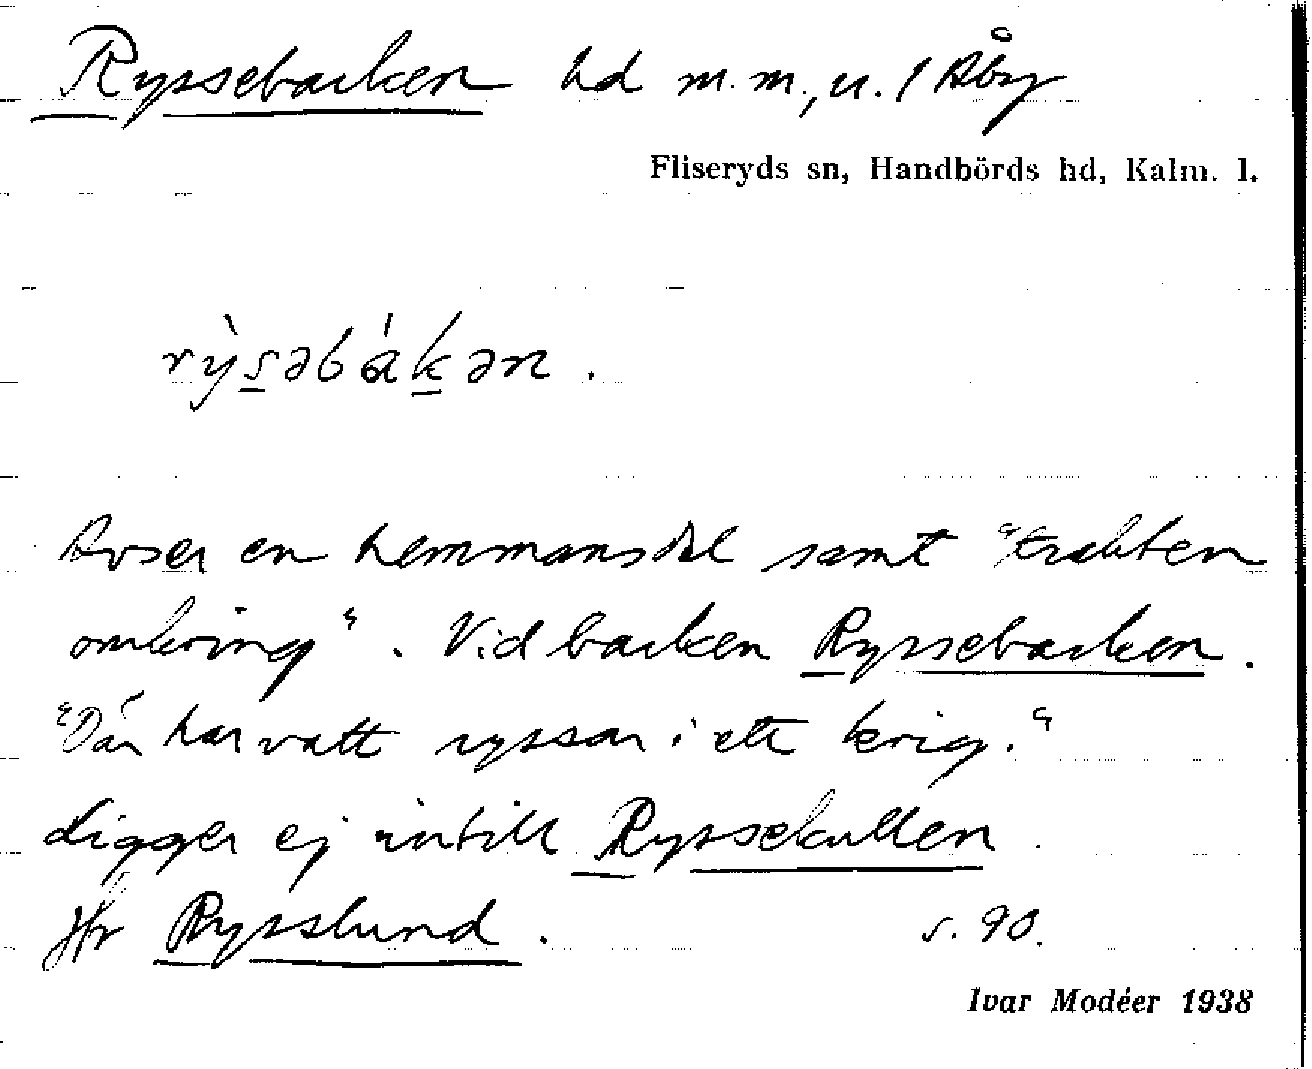 Ryssebacken hd m.m., u. / Åby
Fliseryds sn, Handbörds hd, Kalm. l.
rỳs̲əbák̲ən.
Avser en hemmansdel samt "trakten
omkring". Vid backen Ryssebacken.
"Där har vatt ryssar i ett krig."
Ligger ej intill Ryssekullen.
Jfr Rysslund. s. 90.
Ivar Modéer 1938